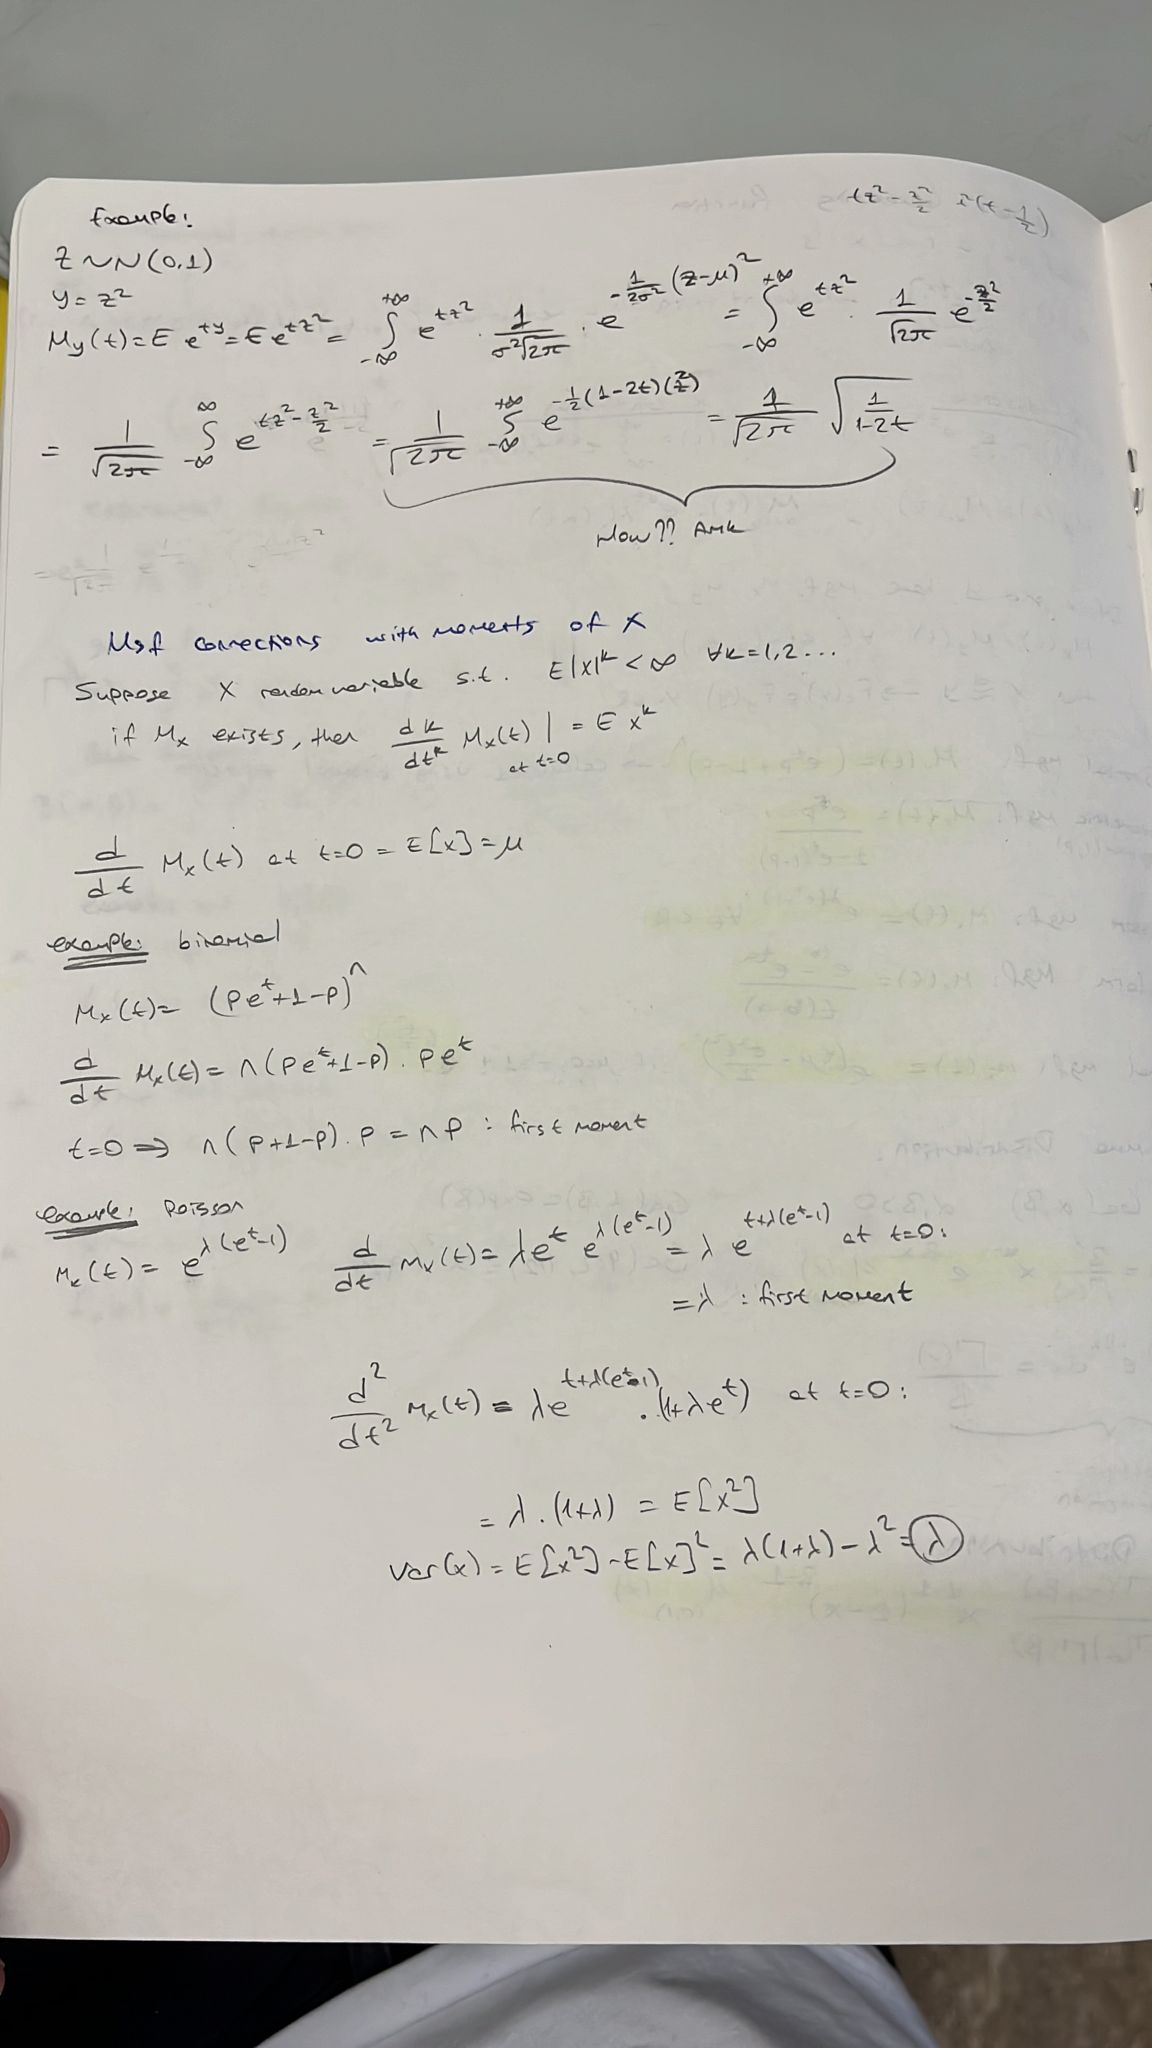 tz² - z²/2 z²(t - 1/2)
Example:
Z ~ N(0,1)
Y = Z²
M_Y(t) = E e^{tY} = E e^{tZ²} = ∫_{-∞}^{+∞} e^{tz²} · 1/(σ²√2π) · e^{-1/(2σ²) (z-μ)²} = ∫_{-∞}^{+∞} e^{tz²} · 1/√2π e^{-z²/2}
= 1/√2π ∫_{-∞}^{∞} e^{tz² - z²/2} = 1/√2π ∫_{-∞}^{+∞} e^{-1/2 (1-2t)(z²)} = 1/√2π √(1/(1-2t))
How?? Amk
Mgf connections with moments of X
Suppose X random variable s.t. E|X|^k < ∞ ∀k=1,2...
if M_X exists, then d^k/dt^k M_X(t) | at t=0 = E X^k
d/dt M_X(t) at t=0 = E[X] = μ
example: binomial
M_X(t) = (pe^t+1-p)^n
d/dt M_X(t) = n(pe^t+1-p) . pe^t
t=0 ⇒ n(p+1-p) . p = np : first moment
example: Poisson
M_X(t) = e^{λ(e^t-1)} d/dt M_X(t) = λe^t e^{λ(e^t-1)} = λ e^{t+λ(e^t-1)} at t=0:
= λ : first moment
d²/dt² M_X(t) = λe^{t+λ(e^t-1)} . (1+λe^t) at t=0:
= λ . (1+λ) = E[X²]
Var(X) = E[X²] - E[X]² = λ(1+λ) - λ² = λ